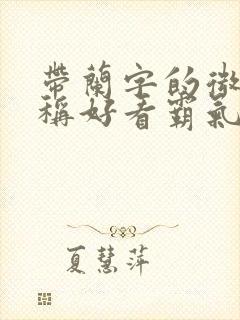 帶蘭字的微
稱好看霸氣
夏慧萍